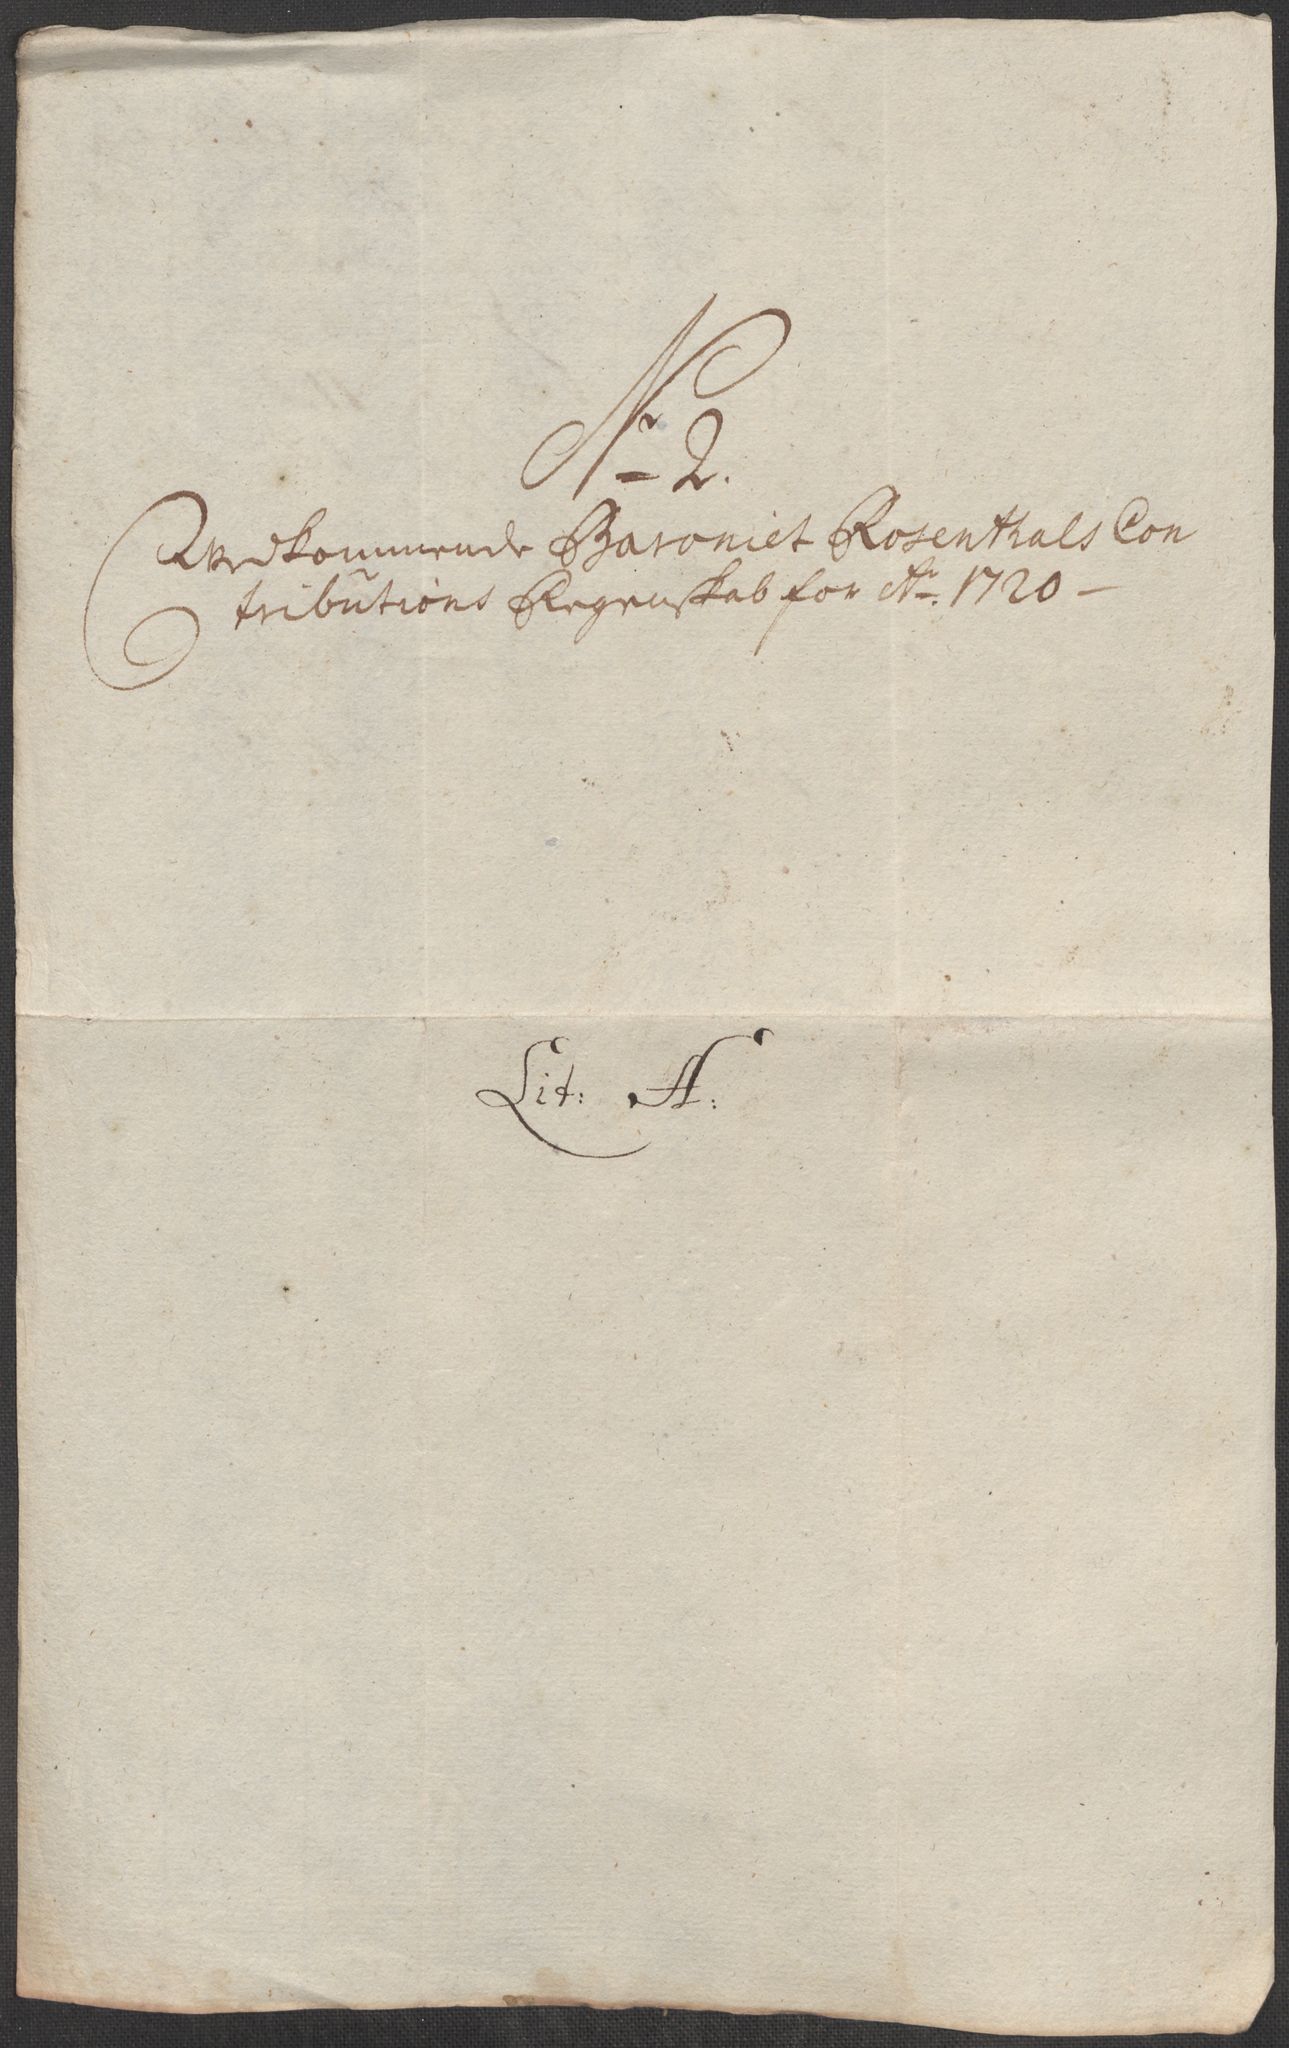 No 2.
Vedkommende Baroniet Rosenthals Con
tributions Regenskab for Ao. 1720 –
Lit: A: